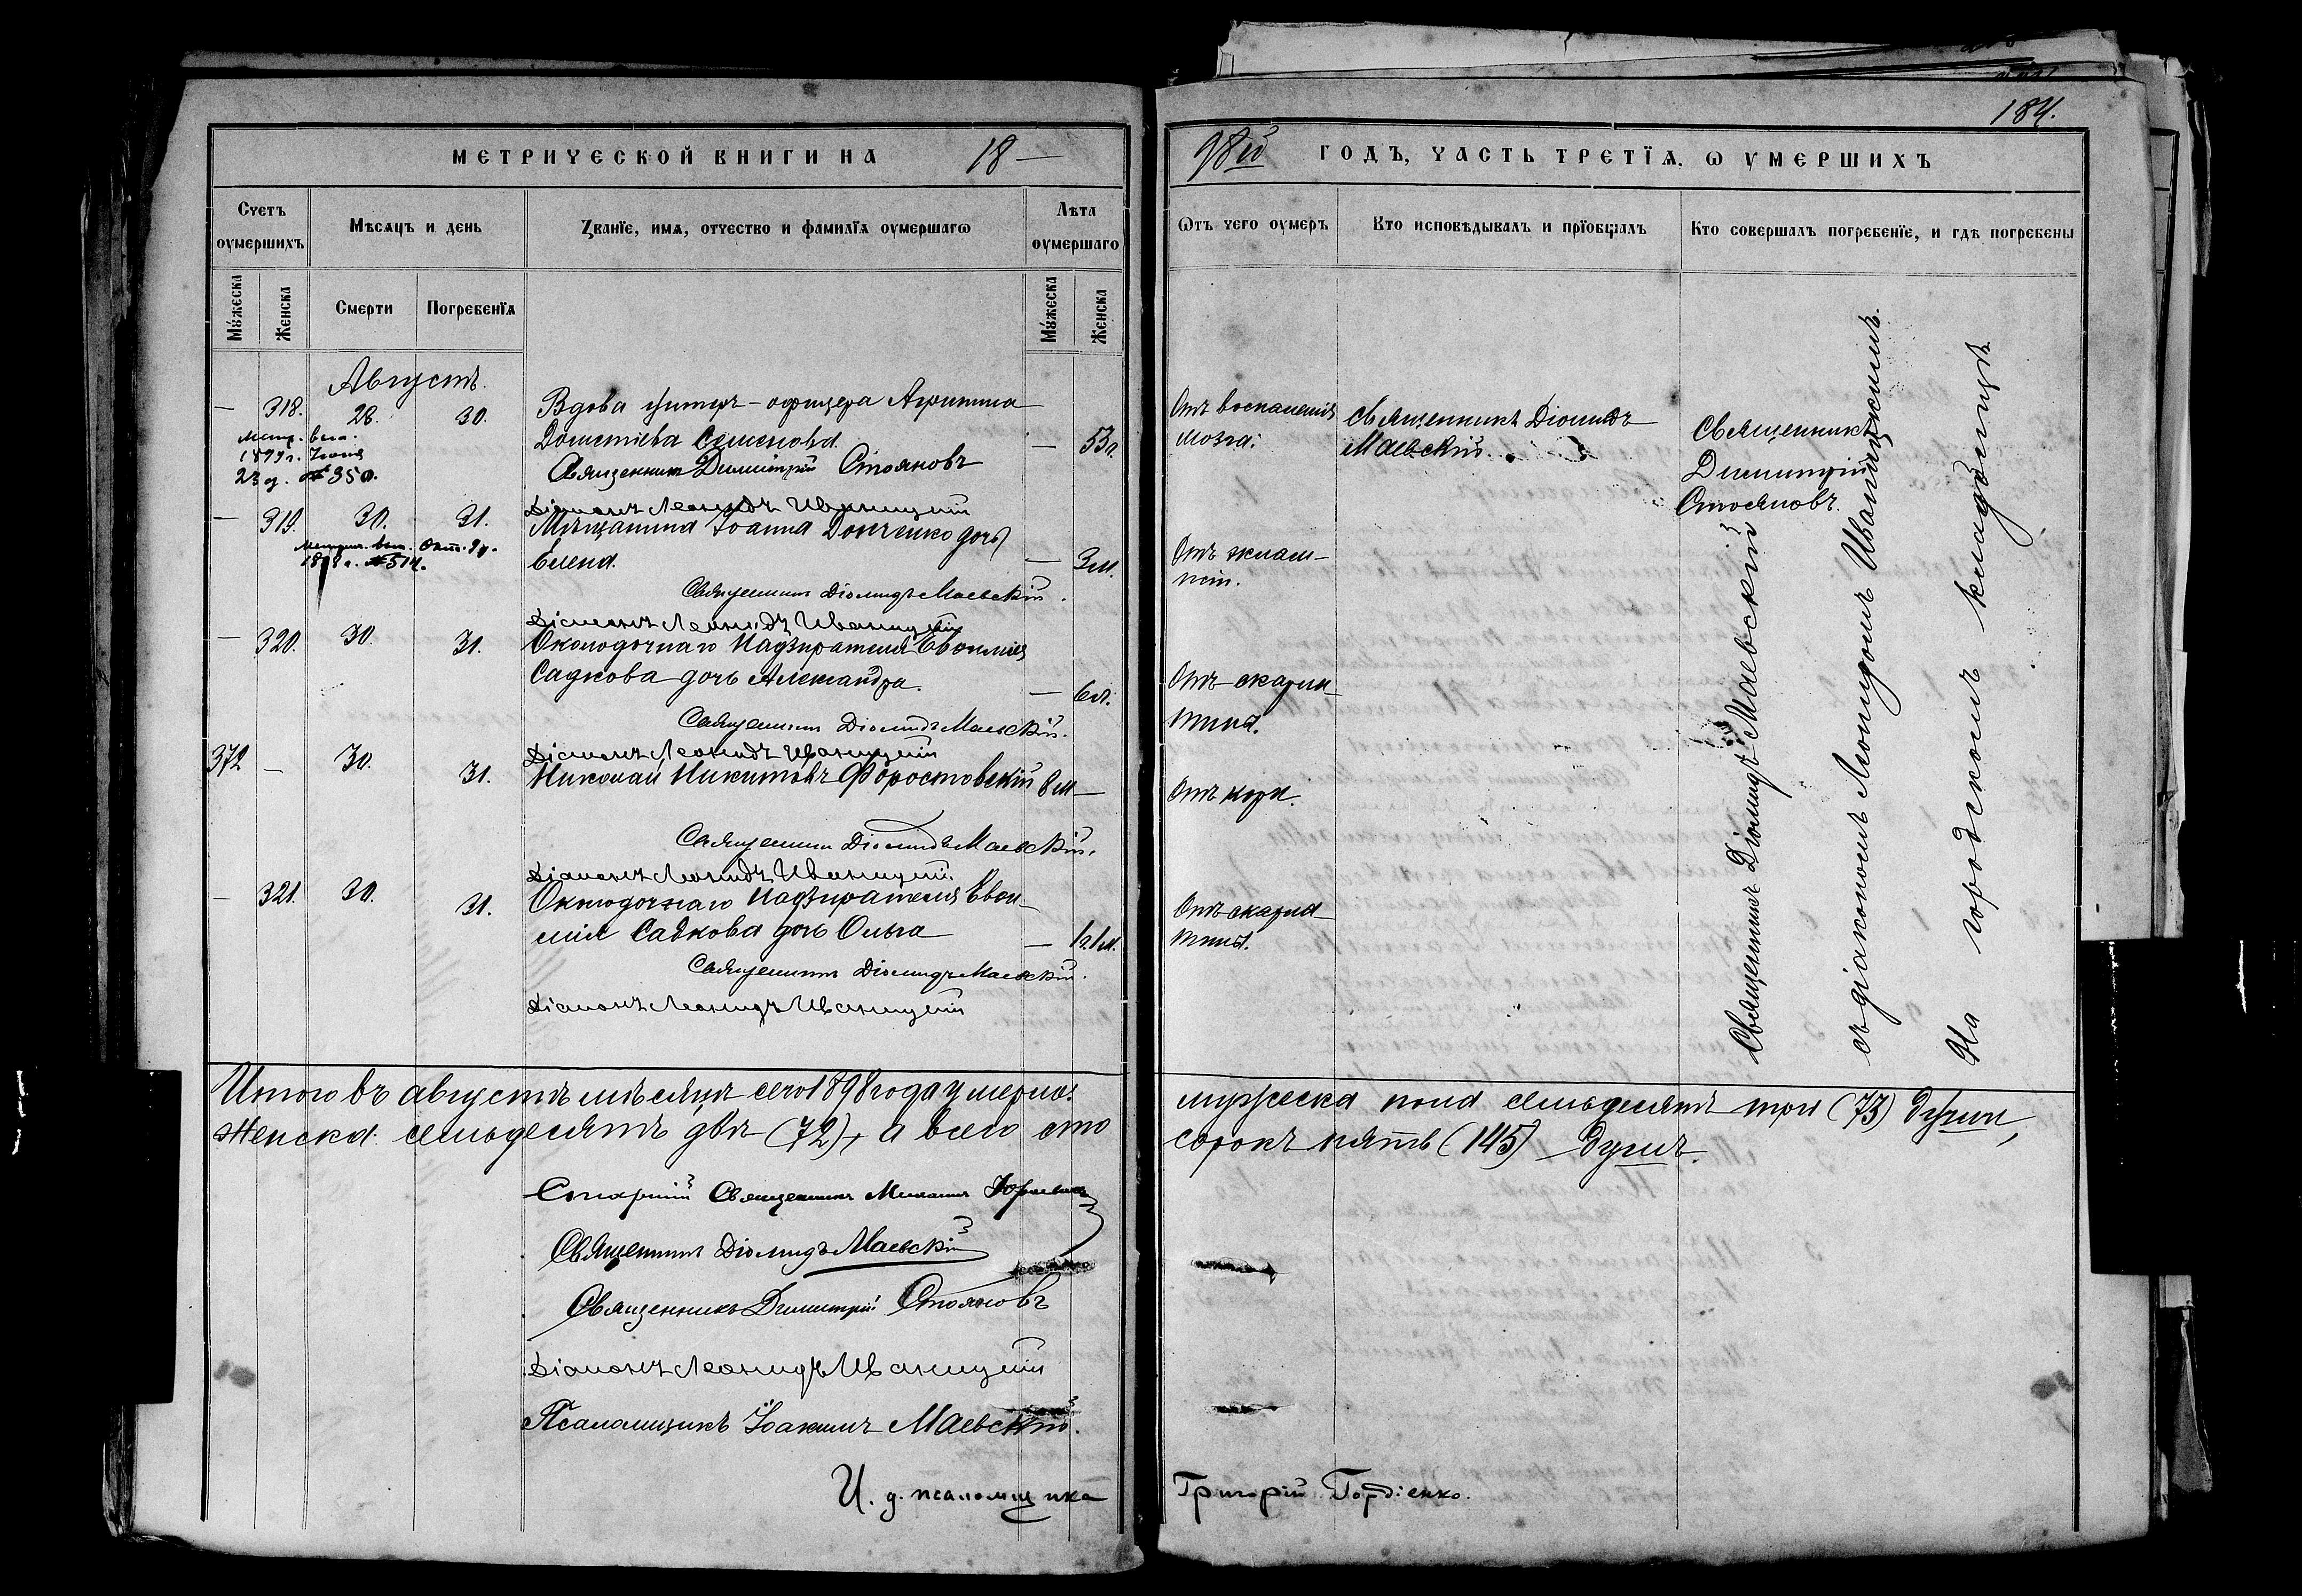 МЕТРИЧЕСКОЙ КНИГИ НА 18 —
Счетъ оумершихъ
Мѣсяцъ и день
Званїе, имя, отчество и фамилїя оумершагѡ
Лѣта оумершаго
Мужеска
Женска
Смерти
Погребенїя
Мужеска
Женска
Августъ.
— 318. 28. 30. Вдова унтеръ-офицера Агрипина
Дометіева Семенова. — 53 г.
Метр. вып.
1899 г. Іюня
23 д. № 350.
Священникъ Димитрій Стояновъ
Діаконъ Леонидъ Иваницкій
— 319. 30. 31. Мѣщанина Іоанна Донченко дочь
Елена. — 3 м.
Метрич. вып. Окт. 9 д.
189 г. № 514.
Священникъ Діомидъ Маевскій.
Діаконъ Леонидъ Иваницкій
— 320. 30. 31. Околодочнаго Надзирателя Евѳимія
Садкова дочь Александра. — 6 л.
Священникъ Діомидъ Маевскій.
Діаконъ Леонидъ Иваницкій
372 — 30. 31. Николай Никитовъ Форостовскій 8 м —
Священникъ Діомидъ Маевскій.
Діаконъ Леонидъ Иваницкій.
— 321. 30. 31. Околодочнаго Надзирателя Евѳи-
мія Садкова дочь Ольга — 1 г. 1 м.
Священникъ Діомидъ Маевскій.
Діаконъ Леонидъ Иваницкій
Итого въ августѣ мѣсяцѣ сего 1898 года умерло:
Женска: семьдесятъ двѣ (72), а всего сто
Священникъ Михаилъ
Священникъ Діомидъ Маевскій
Священникъ Димитрій Стояновъ
Діаконъ Леонидъ Иваницкій
Псаломщикъ Іоакимъ Маевскій.
И. д. псаломщика
184.
98й ГОДЪ, ЧАСТЬ ТРЕТЇЯ. Ѡ УМЕРШИХЪ
Ѿтъ чего оумеръ
Кто исповѣдывалъ и прїобщалъ
Кто совершалъ погребенїе, и гдѣ погребены
Отъ воспаленія
мозга.
Священникъ Діомидъ
Маевскій.
Священникъ
Димитрій
Стояновъ.
Отъ эклам-
псіи.
Отъ скарла-
тины.
Отъ кори.
Отъ скарла-
тины.
Священникъ Діомидъ Маевскій
съ діакономъ Леонидомъ Иваницкимъ.
На городскомъ кладбищѣ
мужеска пола семьдесятъ три (73) души,
сорокъ пять (145) душъ.
Григорій Гордіенко.